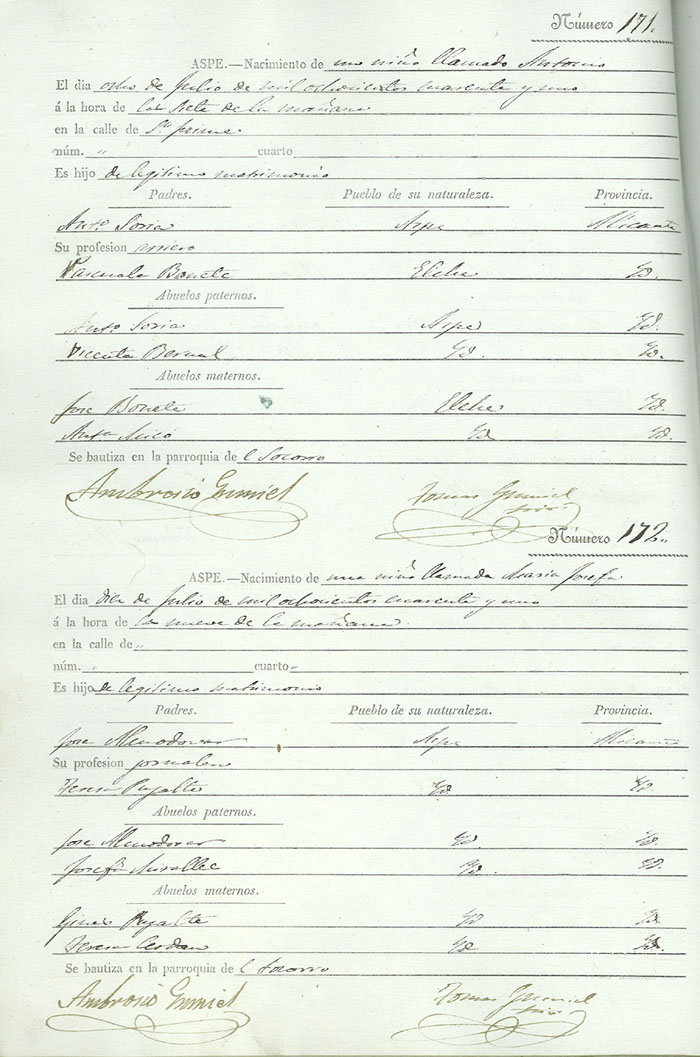 Número 171.
ASPE.—Nacimiento de un niño llamado Antonio
El dia ocho de Julio de mil ochocientos cuarenta y uno
á la hora de las siete de la mañana
en la calle de Sn
núm. " cuarto
Es hijo de legitimo matrimonio
Padres. Pueblo de su naturaleza. Provincia.
Anto. Soria Aspe Alicante
Su profesion arriero
Pascuala Bonete Elche Yd.
Abuelos paternos.
Anto. Soria Aspe Yd.
Vicenta Bernal Yd. Yd.
Abuelos maternos.
Jose Bonete Elche Yd.
Anta Micó Yd Yd.
Se bautiza en la parroquia de l Socorro
Ambrosio Gumiel Tomas Gumiel
Srio
Número 172.
ASPE.—Nacimiento de una niña llamada Maria Josefa
El dia diez de Julio de mil ochocientos cuarenta y uno
á la hora de las nueve de la mañana.
en la calle de "
núm. " cuarto "
Es hija de legitimo matrimonio
Padres. Pueblo de su naturaleza. Provincia.
Jose Almodovar Aspe Alicante
Su profesion jornalero
Teresa Pujalte Yd Yd
Abuelos paternos.
Jose Almodovar Yd. Yd.
Josefa Miralles Yd. Yd.
Abuelos maternos.
Gines Pujalte Yd Yd
Teresa Cerdan Yd Yd.
Se bautiza en la parroquia de l Socorro
Ambrosio Gumiel Tomas Gumiel
Srio